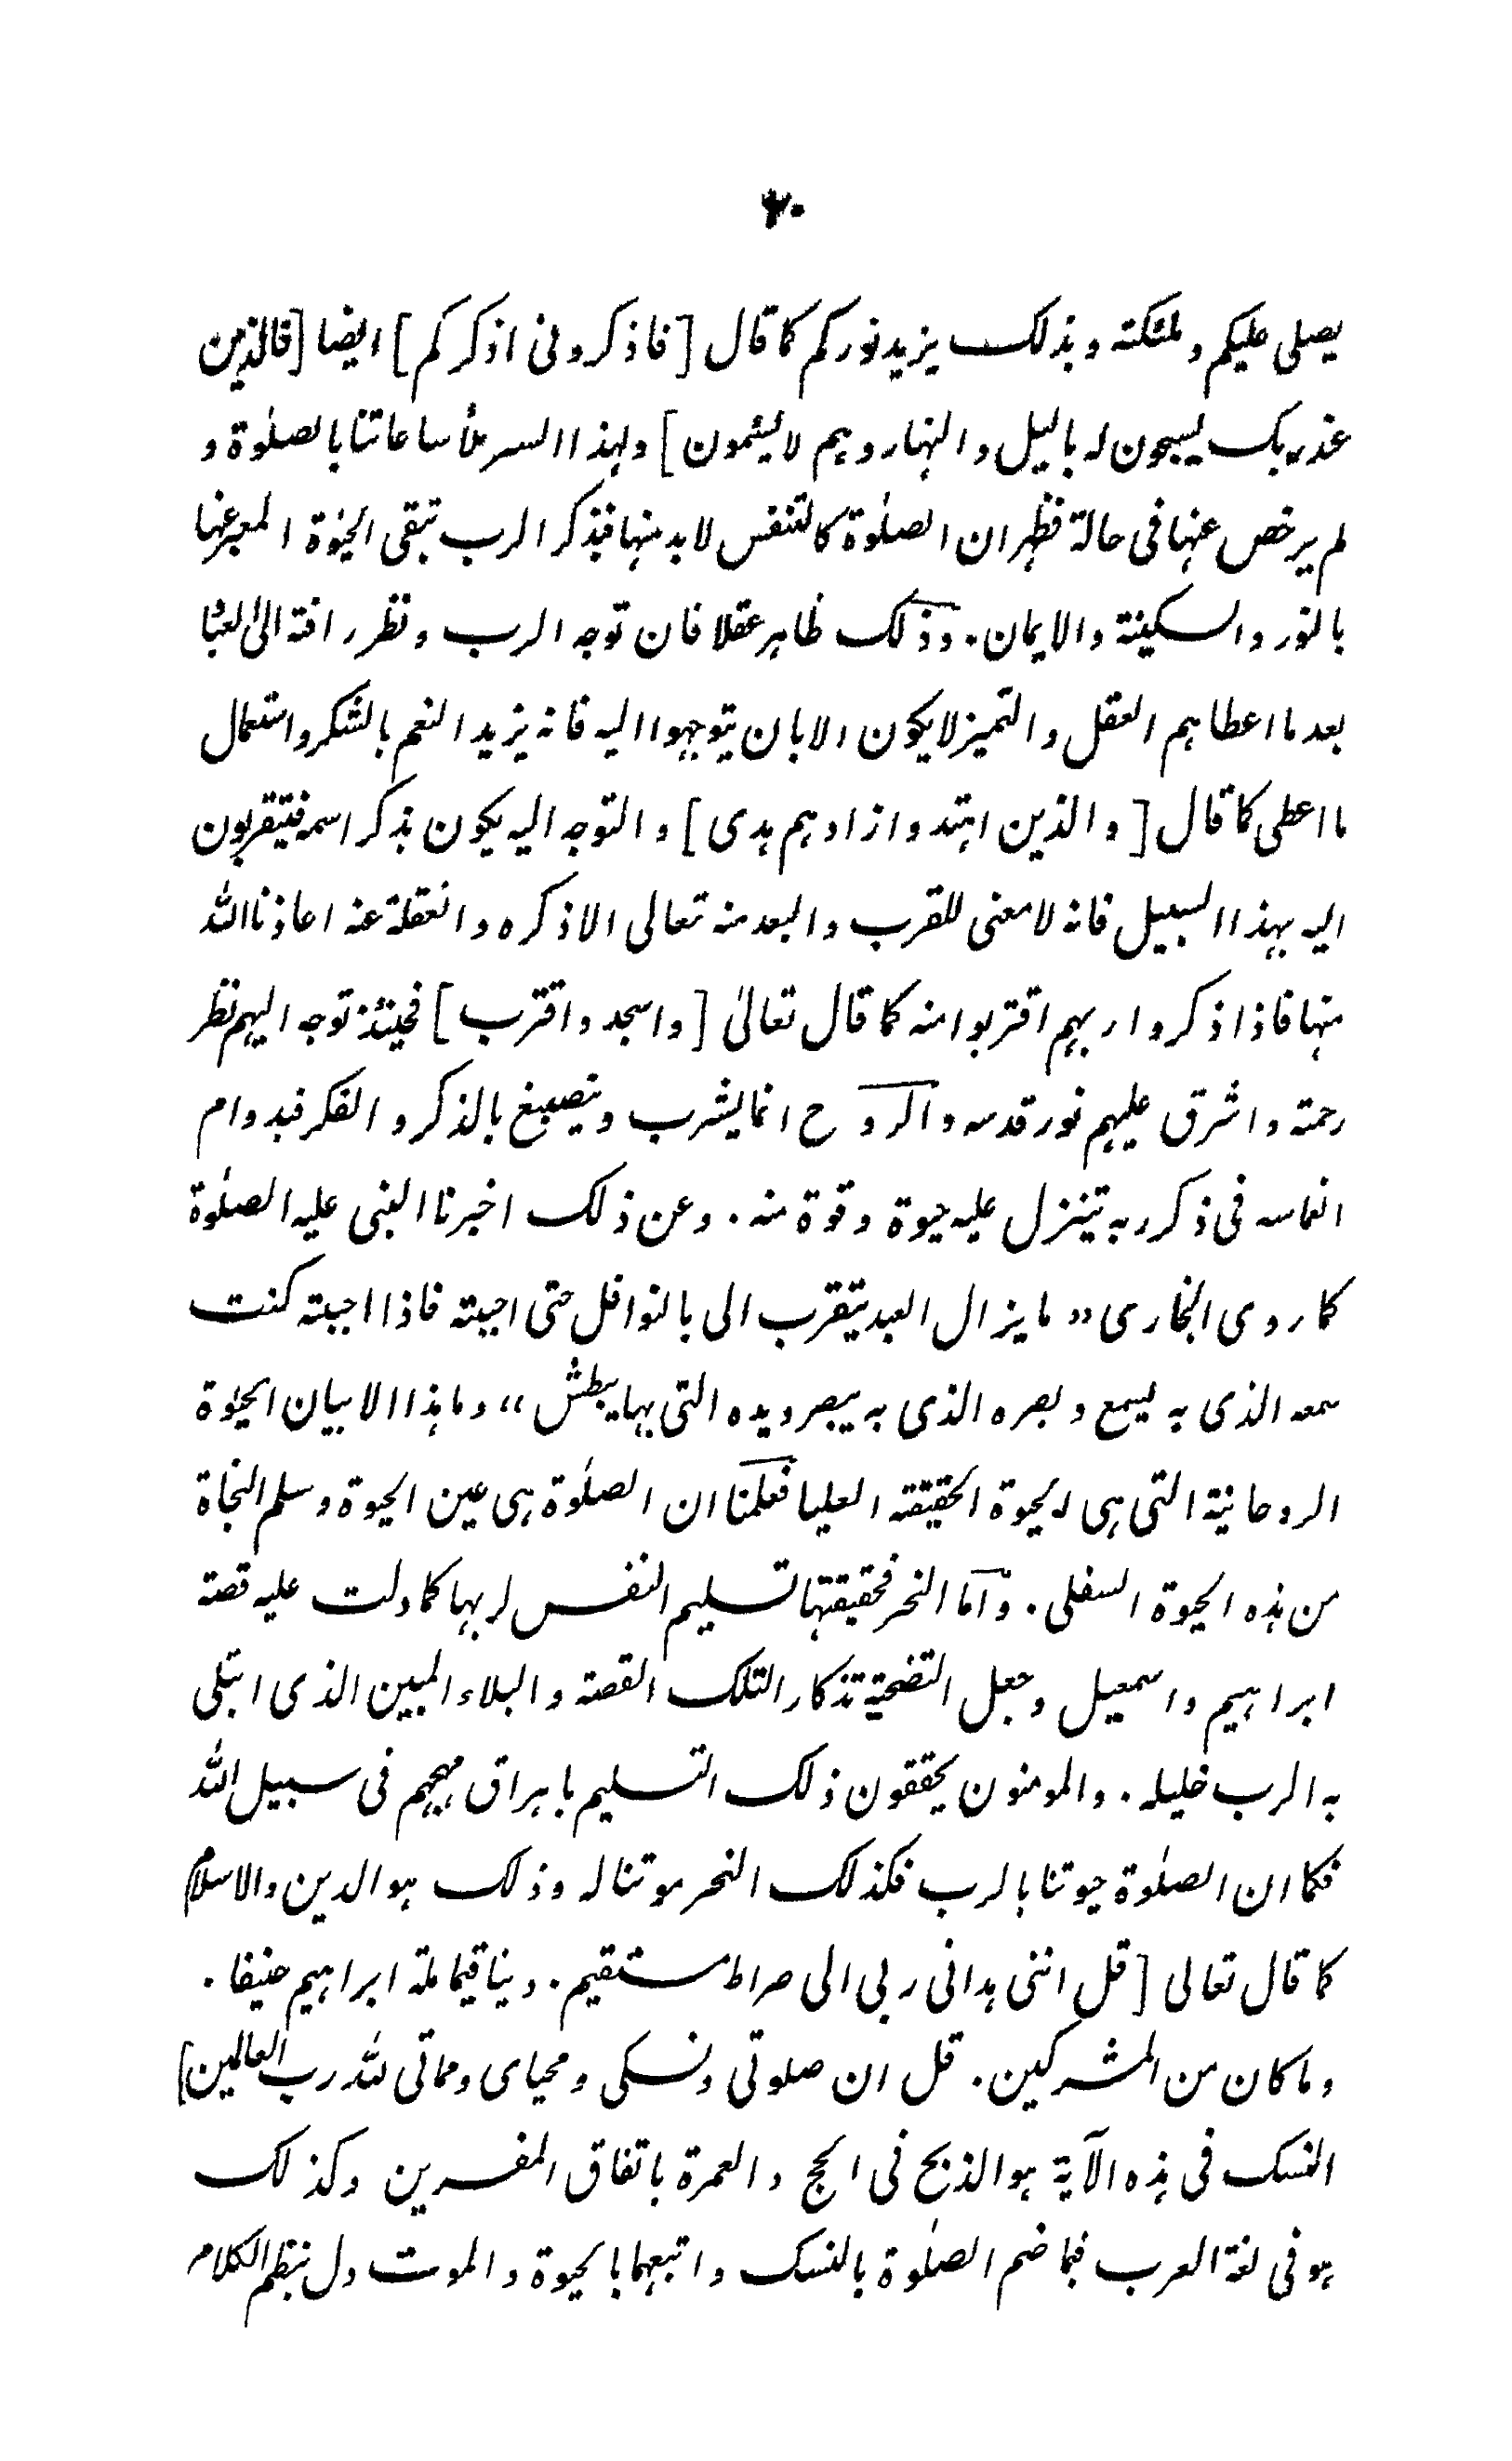 ٢٠
يصلى عليكم وملئكته وبذلك يزيد نوركم كما قال [فاذكرونى اذكركم] ايضا [فالذين
عند ربك يسبحون له بالليل والنهار وهم لا يسئمون] ولهذا السر ملأ ساعاتنا بالصلوٰة و
لم يرخص عنها فى حالة فظهر ان الصلوٰة كالتنفس لا بد منها فبذكر الرب تبقى الحيوٰة المعبر عنها
بالنور والسكينة والايمان. وذلك ظاهر عقلا فان توجه الرب ونظر رافته الىٰ العباد
بعد ما اعطاهم العقل والتميز لا يكون الا بان يتوجهوا اليه فانه يزيد النعم بالشكر واستعمال
ما اعطى كما قال [والذين اهتدوا زادهم هدى] والتوجه اليه يكون بذكر اسمه فيتقربون
اليه بهذا السبيل فانه لا معنى للقرب والبعد منه تعالى الا ذكره والغفلة عنه اعاذنا الله
منها فاذا ذكروا ربهم اقتربوا منه كما قال تعالىٰ [واسجد واقترب] فحينئذ توجه اليهم نظر
رحمته واشرق عليهم نور قدسه والروح انما يشرب وينصبغ بالذكر والفكر فبدوام
انغماسه فى ذكر ربه تتنزل عليه حيوة وقوة منه. وعن ذلك اخبرنا النبى عليه الصلوٰة
كما روى البخارى "ما يزال العبد يتقرب الى بالنوافل حتى احبيته فاذا احببته كنت
سمعه الذى به يسمع وبصره الذى به يبصر ويده التى بها يبطش" وما هذا الا بيان الحيوٰة
الروحانية التى هى الحيوة الحقيقة العليا فعلمنا ان الصلوٰة هى عين الحيوة وسلم النجاة
من هذه الحيوة السفلى. واما النحر فحقيقتها تسليم النفس لربها كما دلت عليه قصة
ابراهيم واسمعيل وجعل التضحية تذكارا لتلك القصة والبلاء المبين الذى ابتلى
به الرب خليله. والمومنون يحققون ذلك التسليم باهراق مهجهم فى سبيل الله
فكما ان الصلوٰة حيوتنا بالرب فكذلك النحر موتنا له وذلك هو الدين والاسلام
كما قال تعالى [قل اننى هدانى ربى الى صراط مستقيم. دينا قيما ملة ابراهيم حنيفا.
وما كان من المشركين. قل ان صلوتى ونسكى ومحياى ومماتى لله رب العالمين]
النسك فى هذه الآية هو الذبح فى الحج والعمرة باتفاق المفسرين وكذلك
هو فى لغة العرب فبما ضم الصلوٰة بالنسك واتبعهما بالحيوة والموت دل بنظم الكلام